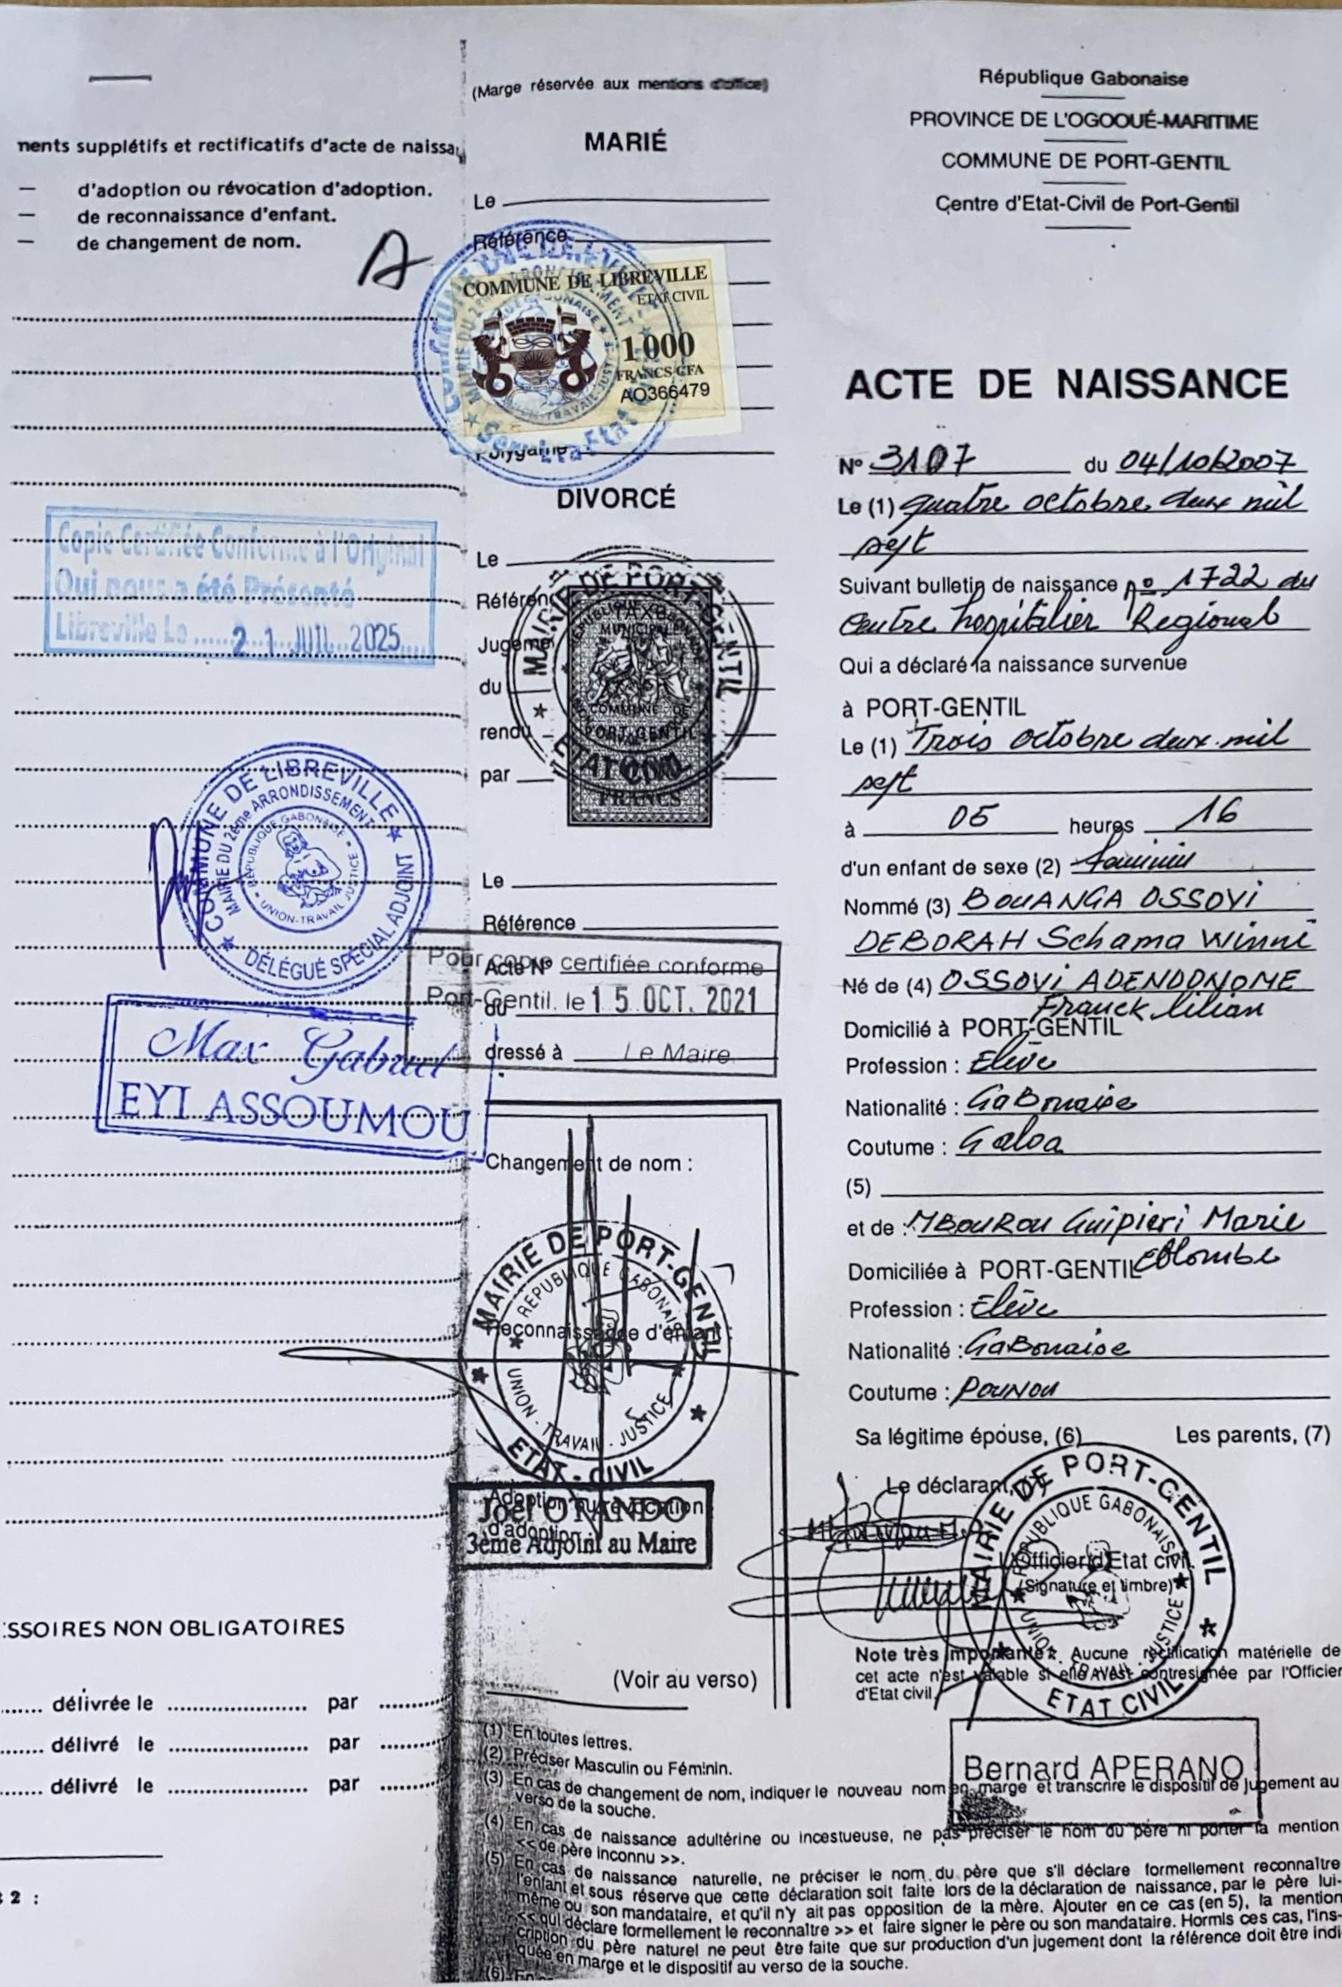 nents supplétifs et rectificatifs d'acte de naissa
— d'adoption ou révocation d'adoption.
— de reconnaissance d'enfant.
— de changement de nom.
A
Copie Certifiée Conforme à l'Original
Qui nous a été Présenté
Libreville Le ..... 2 1 JUIL 2025
COMMUNE DE LIBREVILLE
MAIRIE DU 2ème ARRONDISSEMENT
REPUBLIQUE GABONAISE
UNION-TRAVAIL JUSTICE
DÉLÉGUÉ SPÉCIAL ADJOINT
Max Gabriel
EYI ASSOUMOU
ESSOIRES NON OBLIGATOIRES
délivrée le par
délivré le par
délivré le par
2 :
(Marge réservée aux mentions d'office)
MARIÉ
Le
Référence
COMMUNE DE LIBREVILLE
ETAT CIVIL
1000
FRANCS CFA
AO366479
Polygamie
DIVORCÉ
Le
Référenc
Jugeme
du
rendu
par
MAIRIE DE PORT-GENTIL
MUNICIPAL
COMMUNE DE
PORT-GENTIL
ETAT CIVIL
FRANCS
Le
Référence
Acte N°
du
dressé à
Pour copie certifiée conforme
Port-Gentil. le 1 5 OCT. 2021
Le Maire
Changement de nom :
MAIRIE DE PORT-GENTIL
REPUBLIQUE GABONAISE
UNION - TRAVAIL - JUSTICE
ETAT - CIVIL
Reconnaissance d'enfant
Adoption ou révocation
d'adoption
3ème Adjoint au Maire
(Voir au verso)
République Gabonaise
PROVINCE DE L'OGOOUÉ-MARITIME
COMMUNE DE PORT-GENTIL
Centre d'Etat-Civil de Port-Gentil
ACTE DE NAISSANCE
N° 3107 du 04/10/2007
Le (1) quatre octobre deux mil
sept
Suivant bulletin de naissance n° 1722 du
Centre hospitalier Regional
Qui a déclaré la naissance survenue
à PORT-GENTIL
Le (1) Trois octobre deux mil
sept
à 05 heures 16
d'un enfant de sexe (2) feminin
Nommé (3) BOUANGA OSSOVI
DEBORAH Schama Winni
Né de (4) OSSOVI ADENDONOME
Franck lilian
Domicilié à PORT-GENTIL
Profession : Elève
Nationalité : GaBonaise
Coutume : Galoa
(5)
et de : MBOUROU Guipieri Marie
Colombe
Domiciliée à PORT-GENTIL
Profession : Elève
Nationalité : GaBonaise
Coutume : POUNOU
Sa légitime épouse, (6) Les parents, (7)
Le déclarant,
L'Officier d'Etat civil.
(Signature et timbre)
MAIRIE DE PORT-GENTIL
REPUBLIQUE GABONAISE
UNION - TRAVAIL - JUSTICE
ETAT CIVIL
Note très importante : Aucune rectification matérielle de
cet acte n'est valable si elle n'est contresignée par l'Officier
d'Etat civil.
Bernard APERANO
(1) En toutes lettres.
(2) Préciser Masculin ou Féminin.
(3) En cas de changement de nom, indiquer le nouveau nom en marge et transcrire le dispositif de jugement au
verso de la souche.
(4) En cas de naissance adultérine ou incestueuse, ne pas préciser le nom du père ni porter la mention
<< de père inconnu >>.
(5) En cas de naissance naturelle, ne préciser le nom du père que s'il déclare formellement reconnaître
l'enfant et sous réserve que cette déclaration soit faite lors de la déclaration de naissance, par le père lui-
même ou son mandataire, et qu'il n'y ait pas opposition de la mère. Ajouter en ce cas (en 5), la mention
<< qui déclare formellement le reconnaître >> et faire signer le père ou son mandataire. Hormis ces cas, l'ins-
cription du père naturel ne peut être faite que sur production d'un jugement dont la référence doit être indi-
quée en marge et le dispositif au verso de la souche.
(6) En